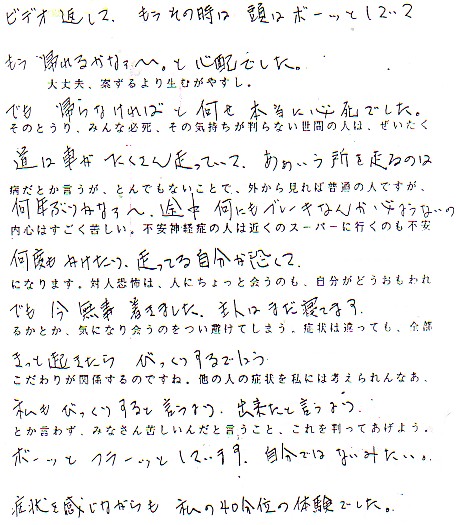 ビデオ返して、もうその時は頭はボーッとしていて
もう帰れるかなぁ〜。と心配でした。
大丈夫、案ずるより生むがやすし。
でも帰らなければと何せ本当に必死でした。
そのとうり、みんな必死、その気持ちが判らない世間の人は、ぜいたく
道は車がたくさん走っていて、あぁいう所を走るのは
病だとか言うが、とんでもないことで、外から見れば普通の人ですが、
何年ぶりかなぁ〜、途中何にもブレーキなんか必ようないの
内心はすごく苦しい。不安神経症の人は近くのスーパーに行くのも不安
何度もかけたり、走ってる自分が恐くて
になります。対人恐怖は、人にちょっと会うのも、自分がどうおもわれ
でも今無事着きました。主人はまだ寝てます。
るかとか、気になり会うのをつい避けてしまう。症状は違っても、全部
きっと起きたらびっくりするでしょう
こだわりが関係するのですね。他の人の症状を私には考えられんなあ、
私もびっくりすると言うより、出来たと言うより
とか言わず、みなさん苦しいんだと言うこと、これを判ってあげよう。
ボーッとフラーッとしています。自分ではないみたい。
症状を感じながらも私の40分位の体験でした。